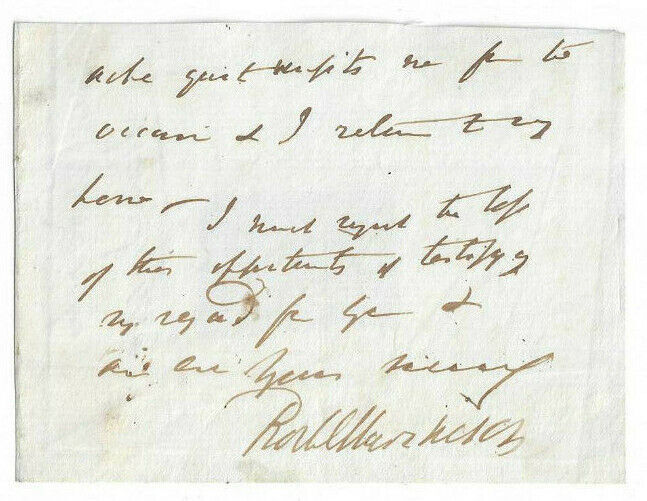 ache quite unfits me for the
occasion & I return to my
home — I much regret the loss
of this opportunity of testifying
my regard for you &
am ever yours sincerely